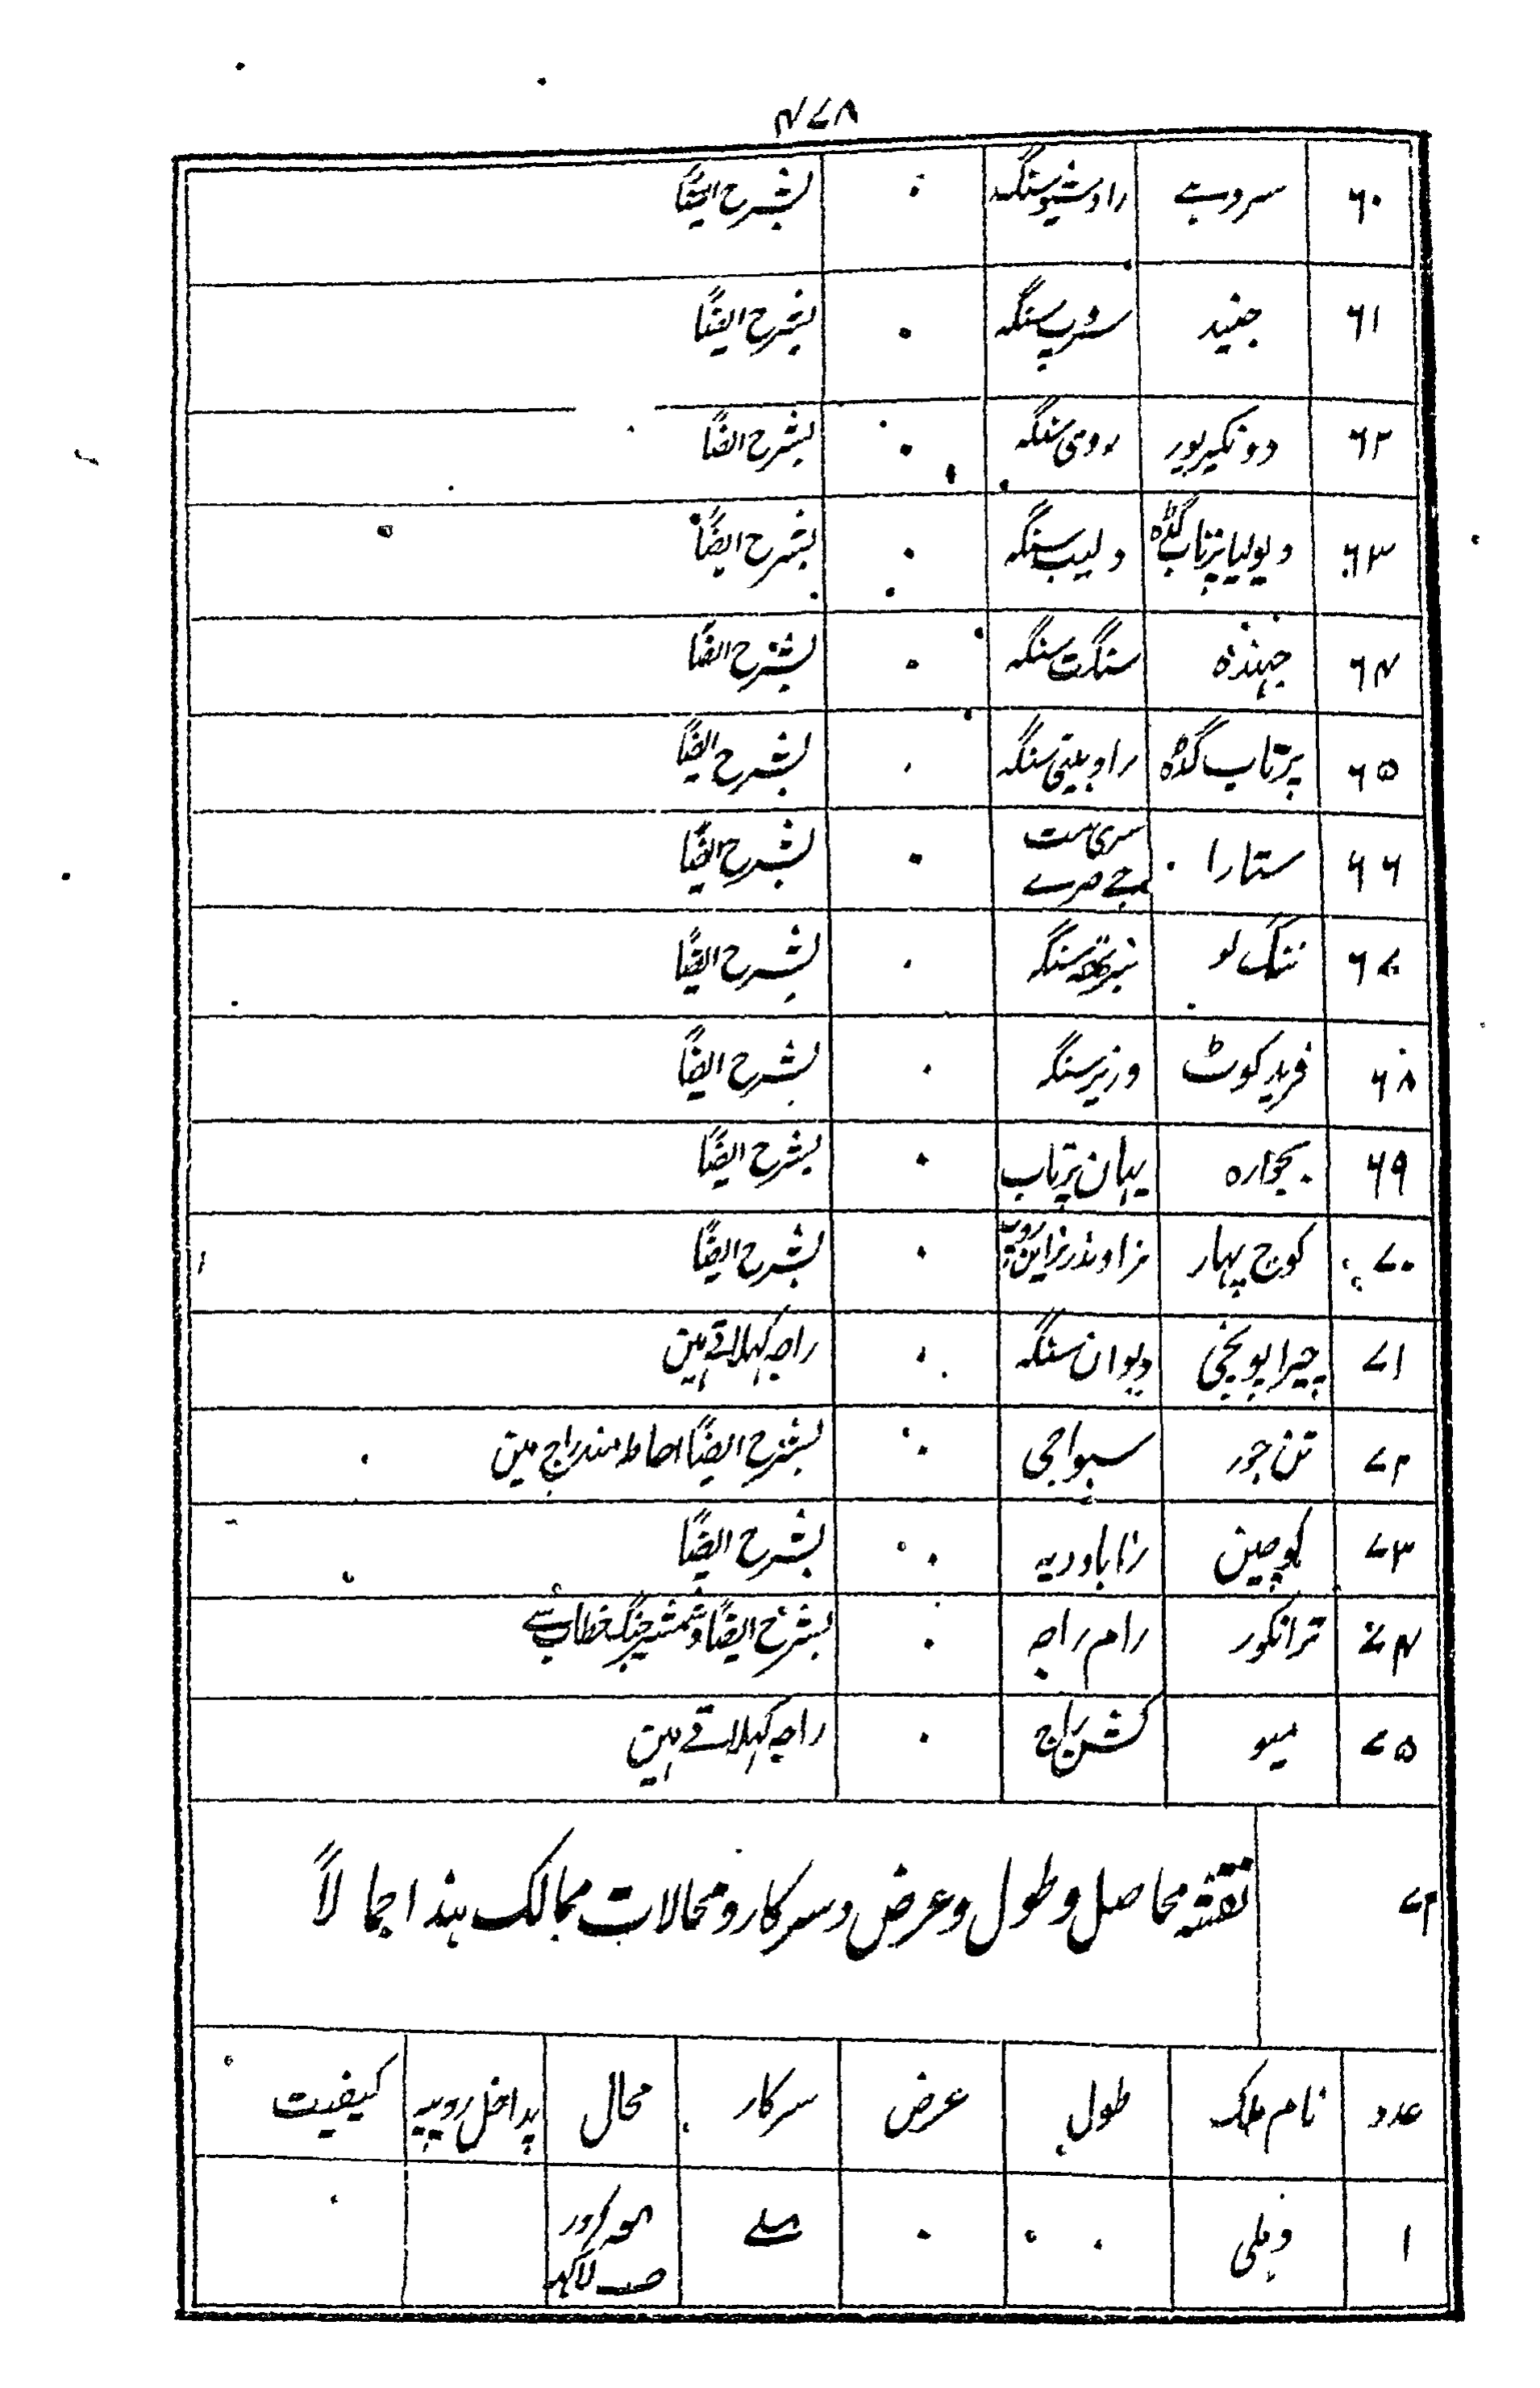 ۴۷۸
۶۰ سروہے راوشیوسنگہ ۰ بشرح ایضاً
۶۱ جنید سروپ سنگہ ۰ بشرح ایضاً
۶۲ دونگیرپور سنگہ ۰ بشرح ایضاً
۶۳ دیولیا پرتاب گڈہ دلیب سنگہ ۰ بشرح ایضاً
۶۴ سنگت سنگہ ۰ بشرح ایضاً
۶۵ پرتاب گڈہ سنگہ ۰ بشرح ایضاً
۶۶ ستارا سری ۰ بشرح ایضاً
۶۷ سنگہ ۰ بشرح ایضاً
۶۸ فرید کوٹ وزیر سنگہ ۰ بشرح ایضاً
۶۹ بجوارہ بہان پرتاب ۰ بشرح ایضاً
۷۰ کوچ بہار ۰ بشرح ایضاً
۷۱ چیراپونجی دیوان سنگہ ۰ راجہ کہلاتے ہین
۷۲ تن جور سیواجی ۰ بشرح ایضاً احاطہ مندراج مین
۷۳ کوچین ۰ بشرح ایضاً
۷۴ ترانکور رام راجہ ۰ بشرح ایضاً و شمشیر جنگ خطاب ہے
۷۵ کشن راج ۰ راجہ کہلاتے ہین
نقشہ محاصل و طول و عرض و سرکار و محالات ممالک ہند اجمالاً
عدد نام ملک طول عرض سرکار محال مداخل روپیہ کیفیت
۱ دہلی ۰ ۰